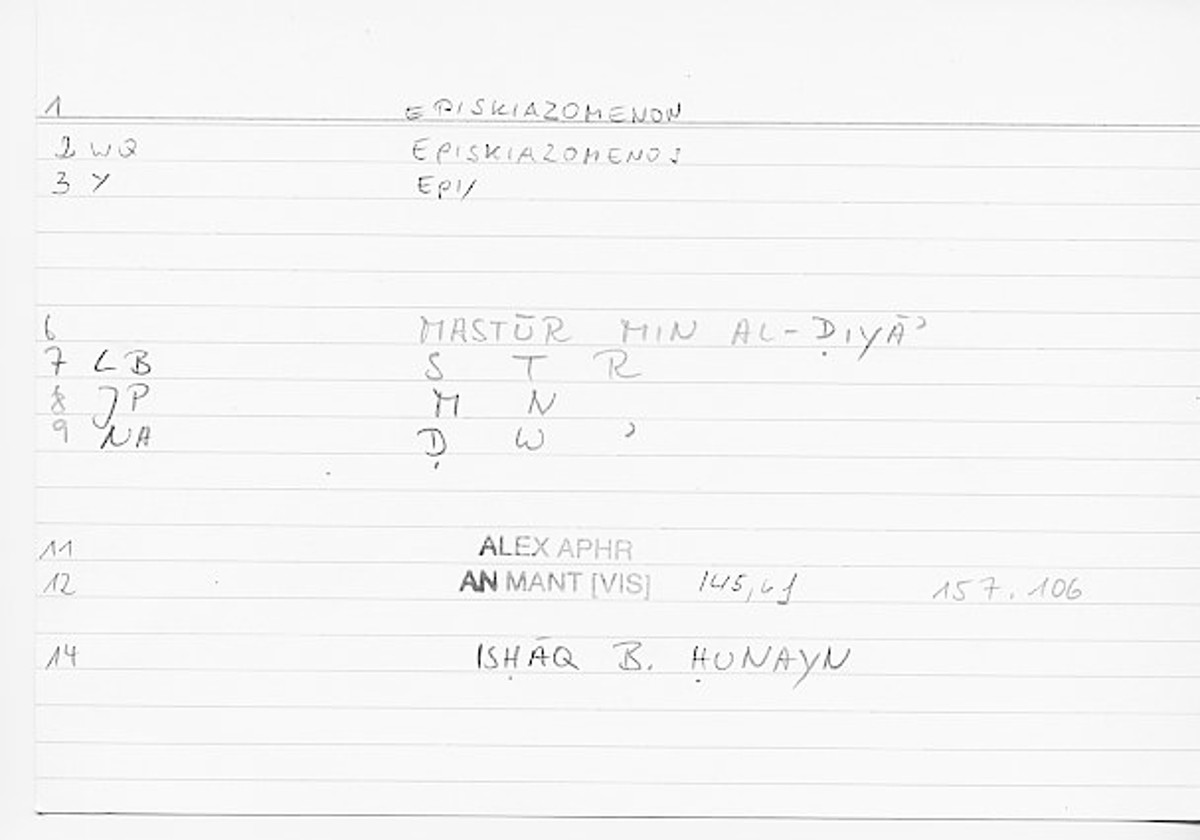 1 EPISKIAZOMENON
2 WQ EPISKIAZOMENOS
3 Y EPI/
6 MASTŪR MIN AL-ḌIYĀʾ
7 LB S T R
8 JP M N
9 NA Ḍ W ʾ
11 ALEX APHR
12 AN MANT [VIS] 145,4f 157.106
14 ISḤĀQ B. ḤUNAYN